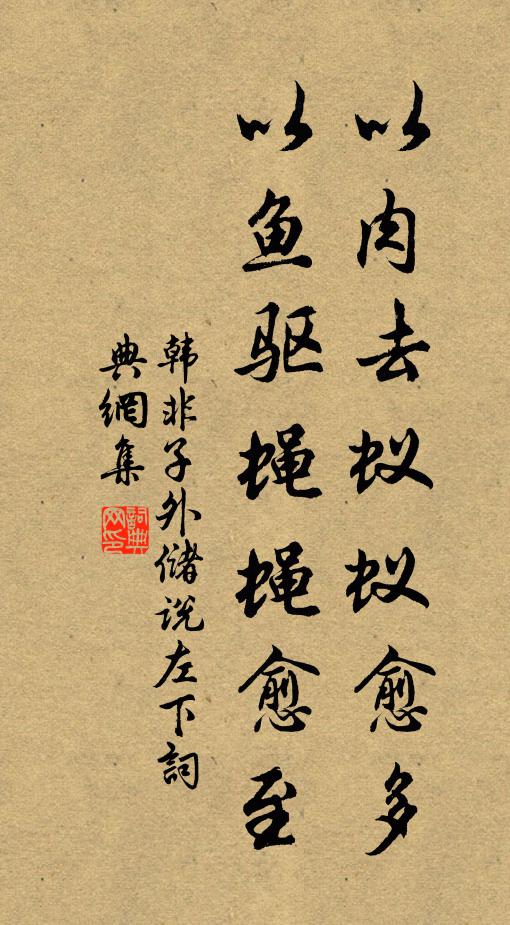 以肉去蚁蚁愈多
以鱼驱蝇蝇愈至
韩非子外儲说左下詞
典網集
詞典
网印